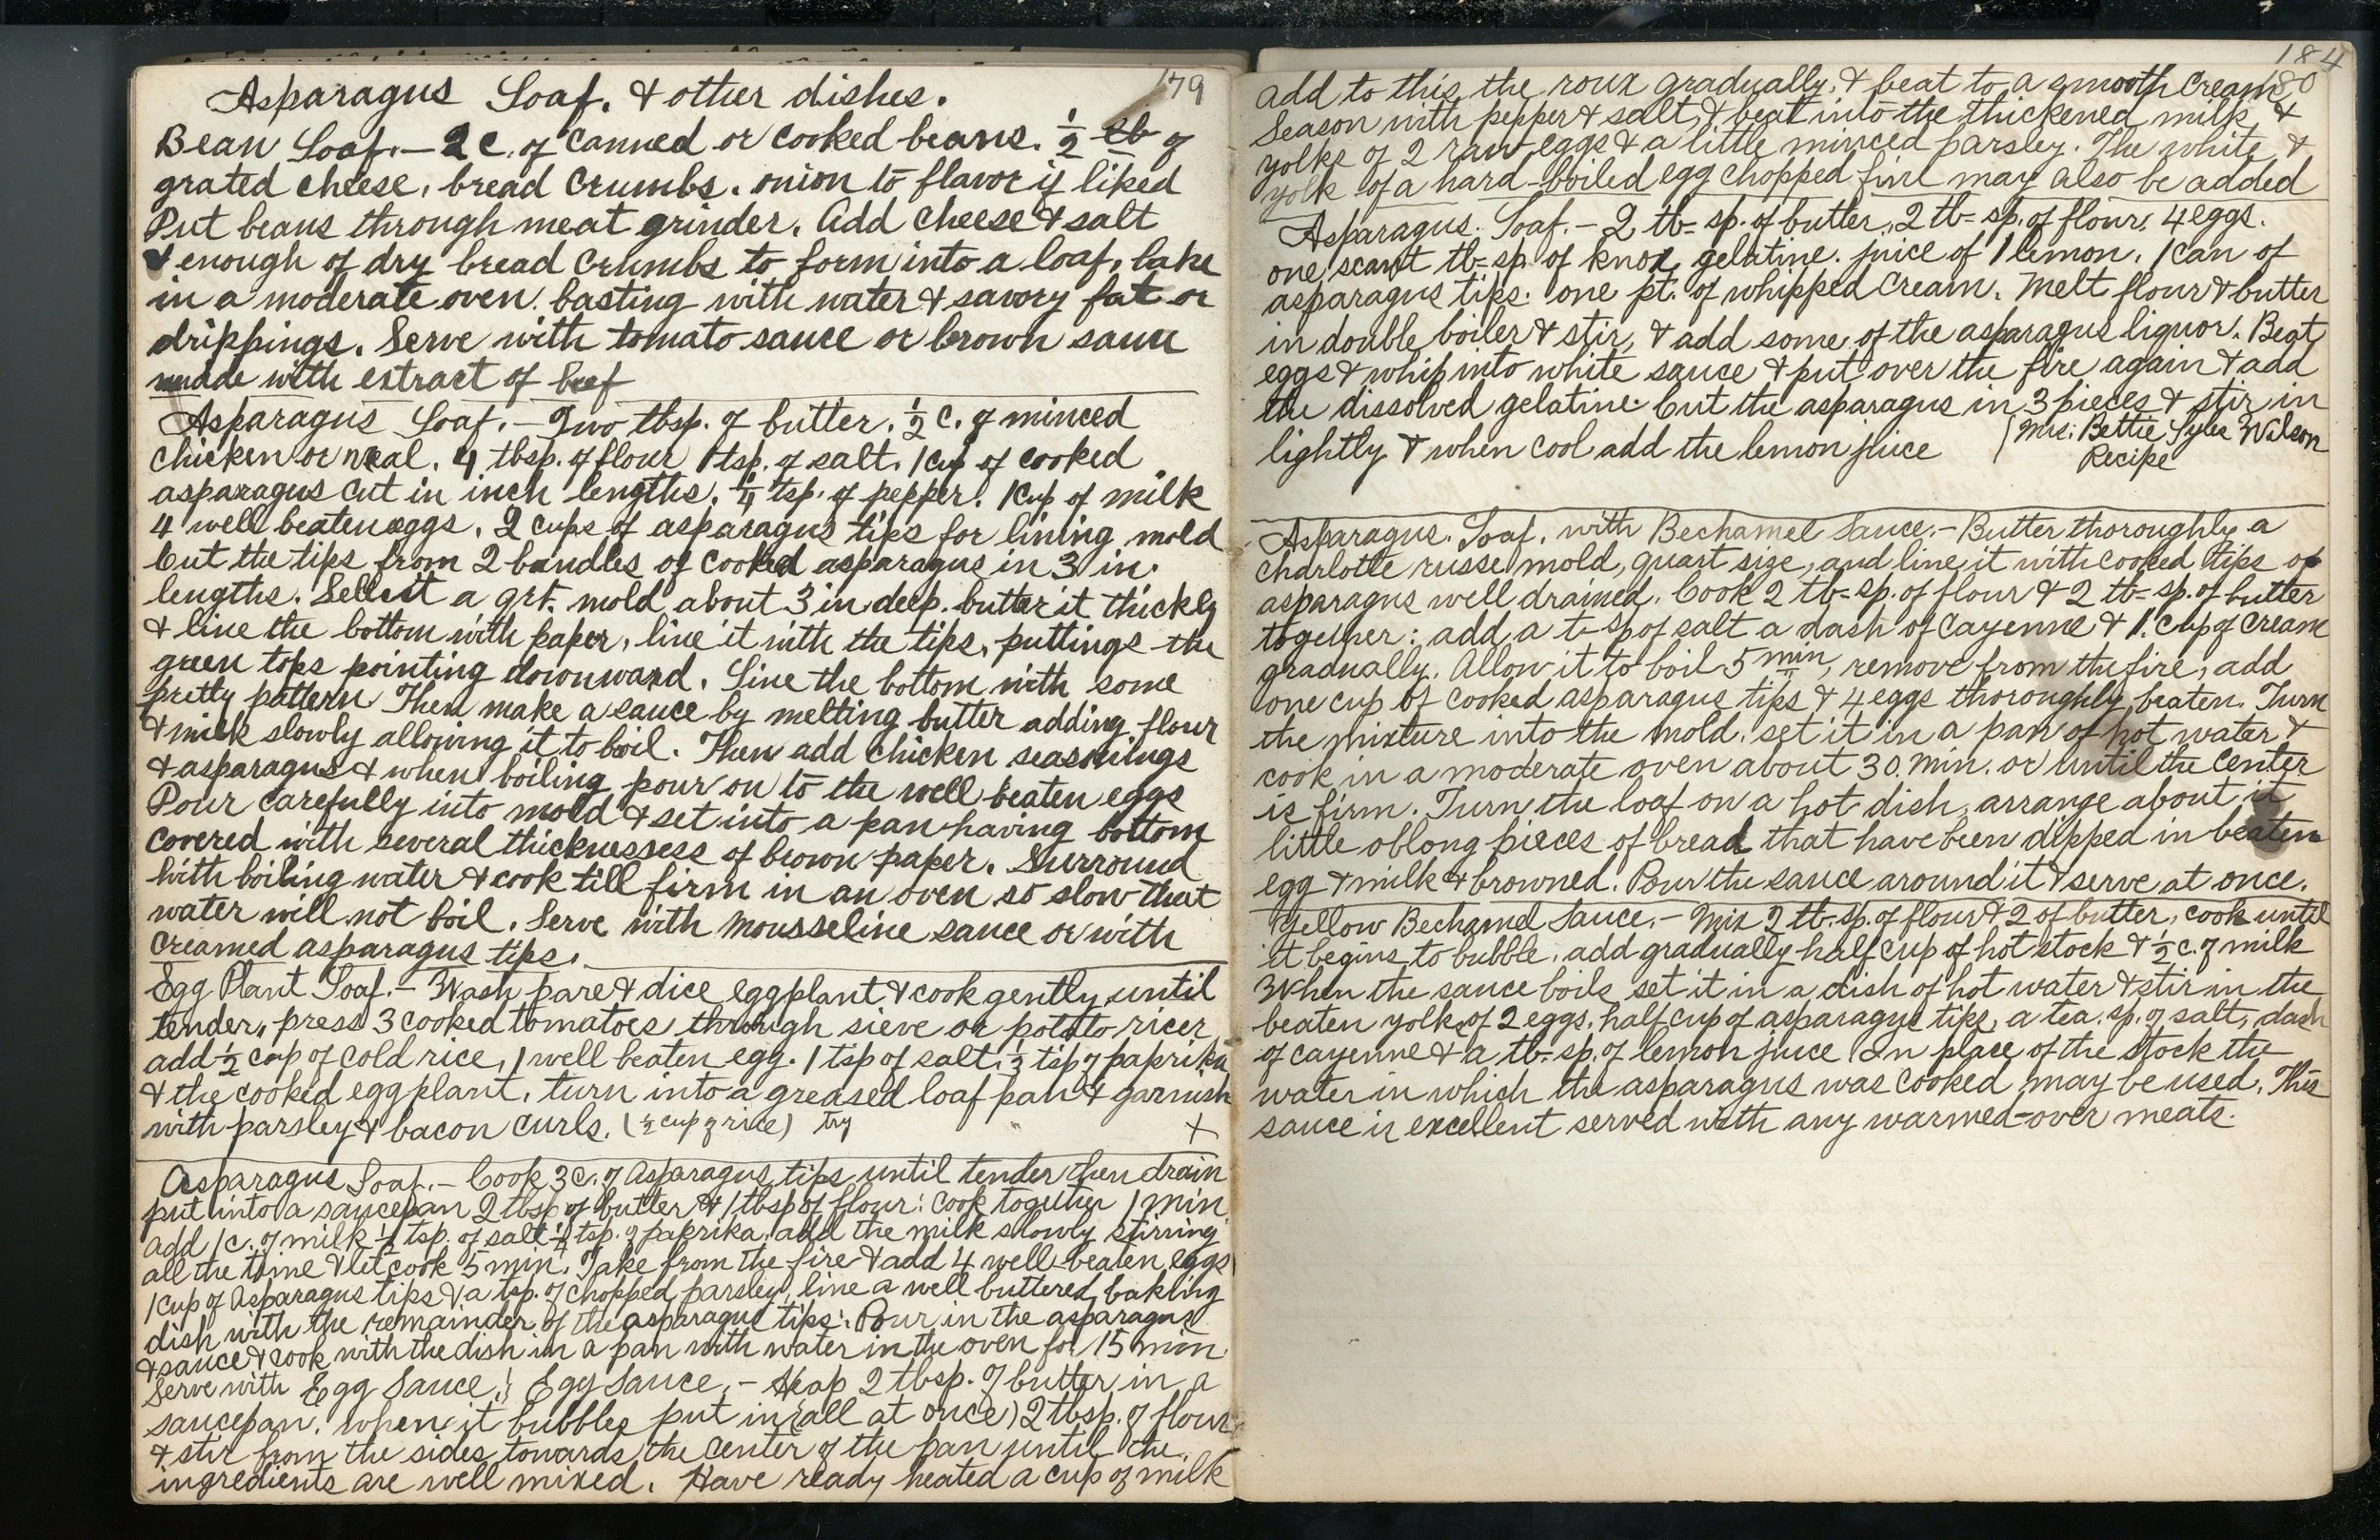 179
Asparagus Loaf. & other dishes.
Bean Loaf. — 2 c. of canned or cooked beans. ½ lb of
grated cheese, bread crumbs. onion to flavor if liked
Put beans through meat grinder. Add cheese & salt
& enough of dry bread crumbs to form into a loaf, bake
in a moderate oven. basting with water & savory fat or
drippings. Serve with tomato sauce or brown sauce
made with extract of beef
Asparagus Loaf. — Two tbsp. of butter. ½ c. of minced
chicken or veal. 4 tbsp. of flour 1 tsp. of salt. 1 cup of cooked
asparagus cut in inch lengths. ¼ tsp. of pepper. 1 cup of milk
4 well beaten eggs. 2 cups of asparagus tips for lining mold
Cut the tips from 2 bundles of cooked asparagus in 3 in.
lengths. Sellect a qrt. mold about 3 in deep. butter it thickly
& line the bottom with paper, line it with the tips, puttings the
green tops pointing downward. Line the bottom with some
pretty pattern Then make a sauce by melting butter adding flour
& milk slowly allowing it to boil. Then add chicken seasonings
& asparagus & when boiling pour on to the well beaten eggs
Pour carefully into mold & set into a pan having bottom
covered with several thicknessess of brown paper. Surround
with boiling water & cook till firm in an oven so slow that
water will not boil. Serve with Mousseline sauce or with
creamed asparagus tips.
Egg Plant Loaf. — Wash pare & dice eggplant & cook gently until
tender, press 3 cooked tomatoes through sieve or potato ricer
add ½ cup of cold rice, 1 well beaten egg. 1 tsp of salt, ½ tsp of paprika
& the cooked eggplant. turn into a greased loaf pan & garnish
with parsley & bacon curls. (½ cup of rice) Try +
Asparagus Loaf. — Cook 3 c. of Asparagus tips until tender then drain
put into a saucepan 2 tbsp of butter & 1 tbsp of flour: cook together 1 min
add 1 c. of milk ½ tsp. of salt ¼ tsp. of paprika, add the milk slowly stirring
all the time & let cook 5 min. Take from the fire & add 4 well beaten eggs
1 cup of Asparagus tips & a tsp. of chopped parsley, line a well buttered baking
dish with the remainder of the asparagus tips. Pour in the asparagus
& sauce & cook with the dish in a pan with water in the oven for 15 min.
Serve with Egg Sauce. Egg Sauce. — Heap 2 tbsp. of butter in a
saucepan. when it bubbles put in (all at once) 2 tbsp. of flour
& stir from the sides towards the center of the pan until the
ingredients are well mixed. Have ready heated a cup of milk
184
180
add to this the roux gradually, & beat to a smooth cream
Season with pepper & salt, & beat into the thickened milk &
yolks of 2 raw eggs & a little minced parsley. The white &
yolk of a hard-boiled egg chopped fine may also be added
Asparagus. Loaf. — 2 tb-sp. of butter, 2 tb-sp. of flour, 4 eggs.
one scant tb-sp of knox gelatine. juice of 1 lemon. 1 can of
asparagus tips. one pt. of whipped cream. Melt flour & butter
in double boiler & stir, & add some of the asparagus liquor. Beat
eggs & whip into white sauce & put over the fire again & add
the dissolved gelatine. Cut the asparagus in 3 pieces & stir in
lightly & when cool add the lemon juice
(Mrs. Bettie Lyle Wilson
Recipe
Asparagus. Loaf. with Bechamel Sauce. — Butter thoroughly a
charlotte russe mold, quart size, and line it with cooked tips of
asparagus well drained. Cook 2 tb-sp. of flour & 2 tb-sp. of butter
together: add a t-sp of salt a dash of cayenne & 1 cup of cream
gradually. Allow it to boil 5 min, remove from the fire, add
one cup of cooked asparagus tips & 4 eggs thoroughly beaten. Turn
the mixture into the mold. set it in a pan of hot water &
cook in a moderate oven about 30 min. or until the center
is firm. Turn the loaf on a hot dish, arrange about it
little oblong pieces of bread that have been dipped in beaten
egg & milk & browned. Pour the sauce around it & serve at once.
Yellow Bechamel Sauce. — Mix 2 tb-sp. of flour & 2 of butter, cook until
it begins to bubble, add gradually half cup of hot stock & ½ c. of milk
When the sauce boils set it in a dish of hot water & stir in the
beaten yolks of 2 eggs, half cup of asparagus tips, a tea. sp. of salt, dash
of cayenne & a tb-sp. of lemon juice In place of the stock the
water in which the asparagus was cooked may be used. This
sauce is excellent served with any warmed-over meats.